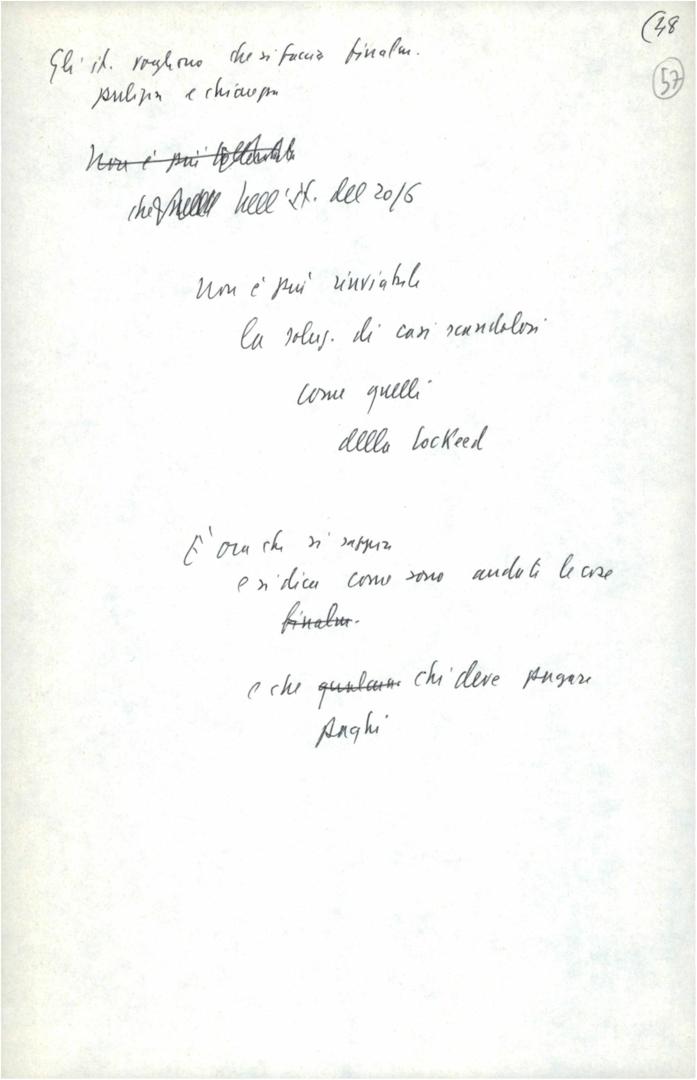 (48
57
Gli it. vogliono che si faccia finalm.
pulizia e chiarezza
Non è più tollerabile
che nell'It. del 2016
Non è più rinviabile
la soluz. di casi scandalosi
come quelli
della Lockeed
È ora che si sappia
e si dica come sono andate le cose
finalm.
e che qualcuno chi deve pagare
paghi